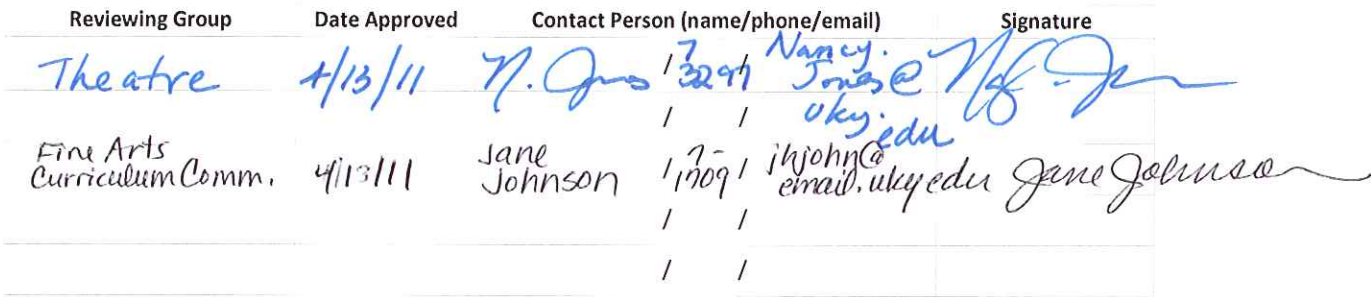 Reviewing Group Date Approved Contact Person (name/phone/email) Signature
Theatre 4/13/11 N. Jones / 7 3297 / Nancy. Jones@ uky. edu
/ /
Fine Arts Curriculum Comm. 4/13/11 Jane Johnson / 7- 1709 / jhjohn@ email.uky edu Jane Johnson
/ /
/ /